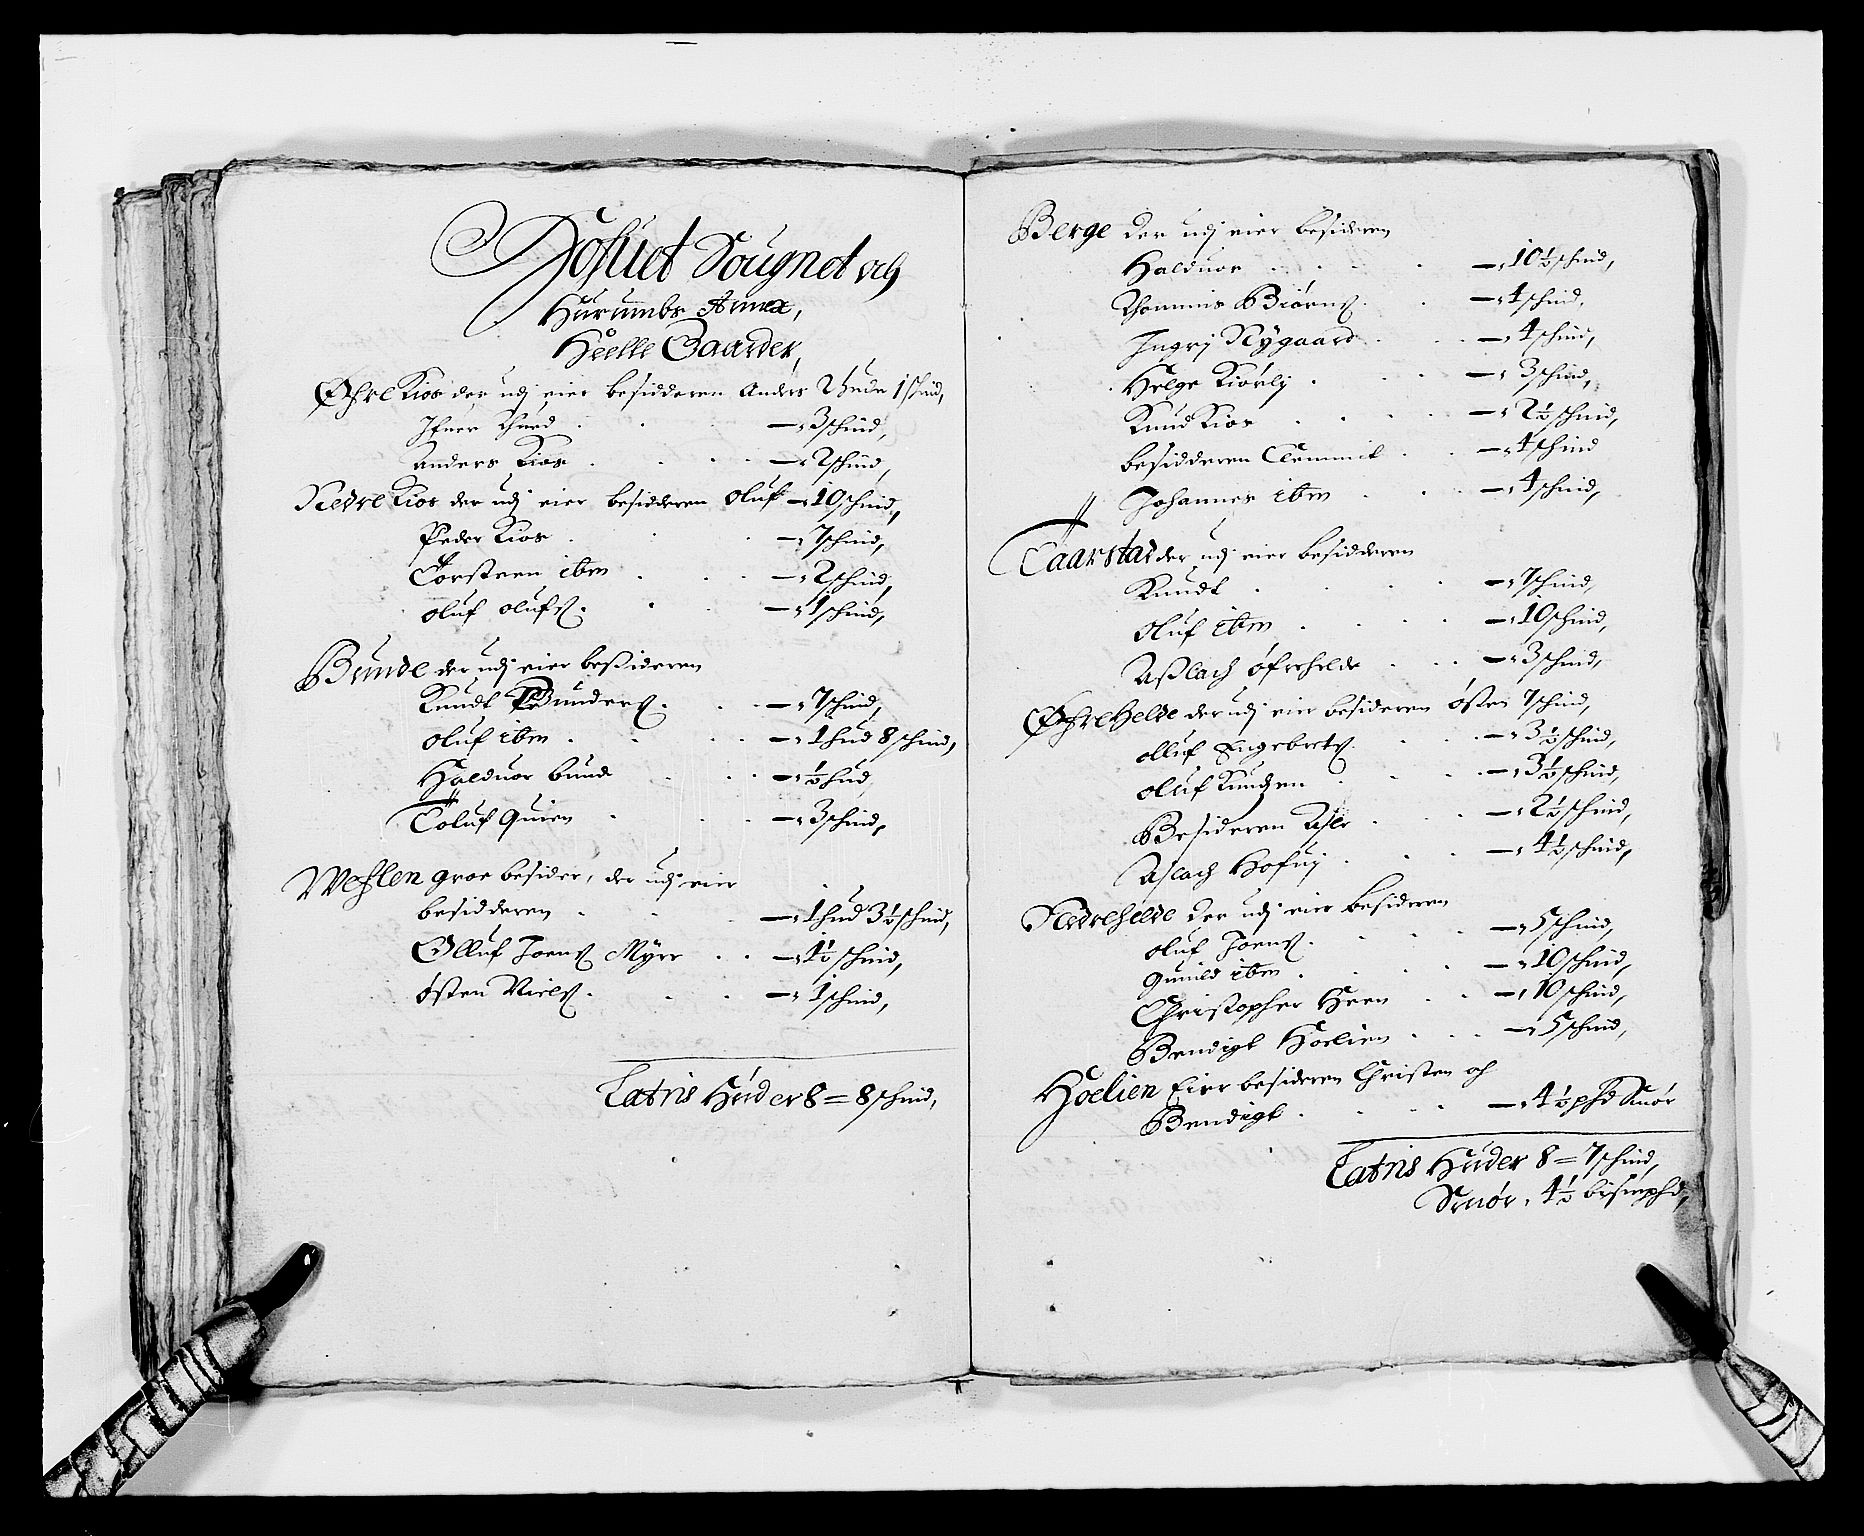 Hofuet Sougnet och
Hurumbs Annex,
Heelle Gaarder,
Øfre Kios der udj eier besidderen Anders Bunde 1 schind,
Ifuer Thued — 3 schind,
Anders Kios — 2 schind,
Nedre Kios der udj eier besidderen Oluf — 10 schind,
Peder Kios — 7 schind,
Torsteen ibm — 2 schind,
Oluf Olufs. — 1 schind,
Bunde der udj eier besideren
Knudt Gunders. — 7 schind,
Oluf ibm — 1 hud 8 schind,
Halduor bunde — ½ hud,
Toluf Quien — 3 schind,
Wehlen groe besider, der udj eier
besidderen — 1 hud 3½ schind,
Olluf Joens. Myrr — 4½ schind,
østen Niels. — 1 schind,
Latris Huder 8 = 8 schind,
Berge der udj eier besideren
Halduor — 10½ schind,
Thommis Biørns. — 4 schind,
Ingrj Nygaard — 4 schind,
Helge Kiørlj — 3 schind,
Knud Kios — 2½ schind,
besidderen Clemmit — 4 schind
Johannes ibm — 4 schind,
Taarstad der udj eier besidderen
Knudt — 7 schind,
Oluf ibm — 10 schind,
Aslach øfrehelde — 3 schind,
Øfrehelde der udj eier besideren østen 7 schind,
Olluf Engebrets. — 3½ schind,
Oluf Knudzen — 3½ schind,
Besideren Asle — 2½ schind,
Aslach Hofuj — 4½ schind,
Nedrehelde der udj eier besideren
Oluf Joens. — 5 schind,
Gunild ibm — 10 schind,
Christopher Heen — 10 schind,
Bendigt Hoelien — 5 schind,
Hoelien Eier besideren Christen och
Bendigt — 4½ pd Smør
Latris Huder 8 = 7 schind,
Smør. 4½ bismpd,